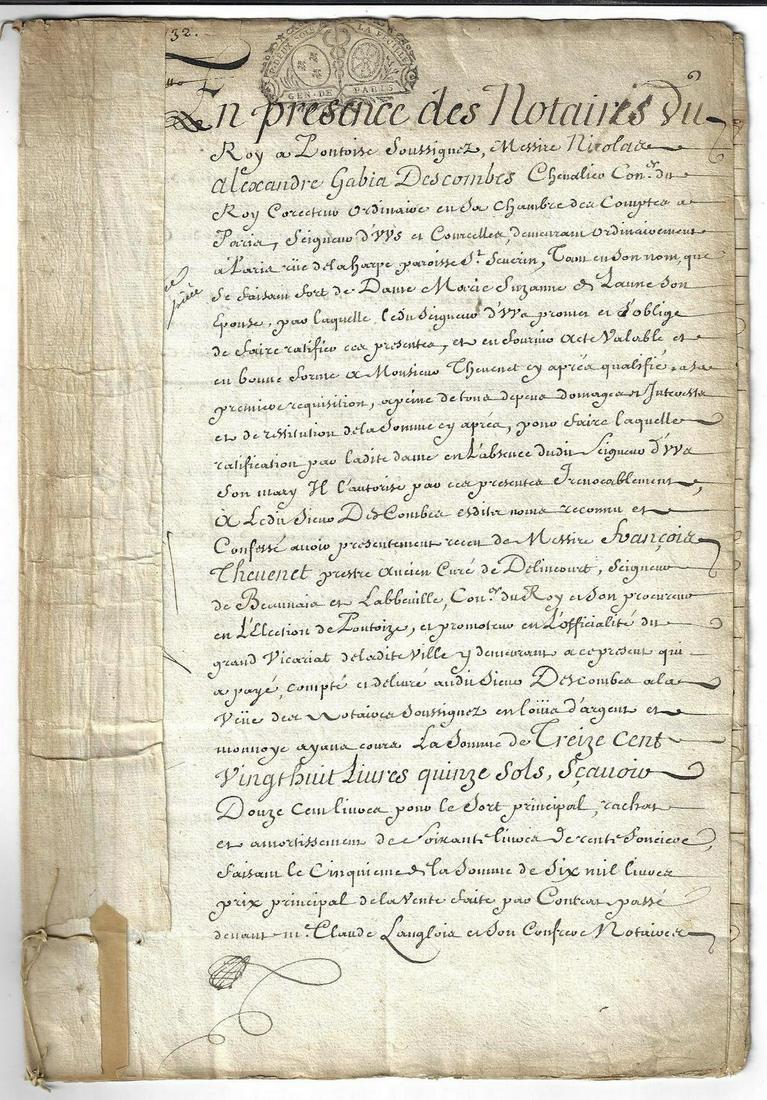 32.
DEUX SOLS LA FEUILLE
GEN. DE PARIS
En presence des Notaires du
Roy a Pontoise Soussignez, Messire Nicolas
Alexandre Gabia Descombes Chevalier Con.er du
Roy Corecteur Ordinaire en Sa Chambre des Comptes a
Paris, Seigneur d'yvs et Courcelles, demeurant Ordinairement
a Paris rüe de la harpe paroisse S.t Severin, Tant en Son nom, que
Se faisant fort de Dame Marie Suzanne de Laune Son
Epouse, par laquelle ledit Seigneur d'yvs promet et S'oblige
de faire ratifier ces presentes, et en fournir Acte Valable et
en bonne forme a Monsieur Thevenet cy aprés qualifié, a sa
premiere requisition, a peine de tous depens domages et Interests
et de restitution de la Somme cy aprés, pour faire laquelle
ratification par ladite dame en L'absence dudit Seigneur d'yvs
Son mary Il l'autorise par ces presentes Irrevocablement,
A Ledit Sieur Des Combes esdits noms reconnu et
Confessé avoir presentement receu de Messire François
Thevenet prestre Ancien Curé de Delincourt, Seigneur
de Beauvais et Labbeville, Con.er du Roy et Son procureur
en L'Election de Pontoize, et promoteur en L'officialité du
grand Vicariat de ladite Ville y demeurant a ce present qui
a payé, compté et delivré audit Sieur DesCombes a la
Veüe des Notaires Soussignez en loüis d'argent et
monnoye ayans cours La Somme de Treize Cent
Vingthuit Livres quinze Sols, Sçavoir
Douze Cent livres pour le Sort principal, rachat
et amortissement de Soixante livres de rente fonciere,
faisant le Cinquieme de la Somme de Six mil livres
prix principal de la Vente faite par Contrat passé
devant m.e Claude Langlois et Son Confrere Notaires